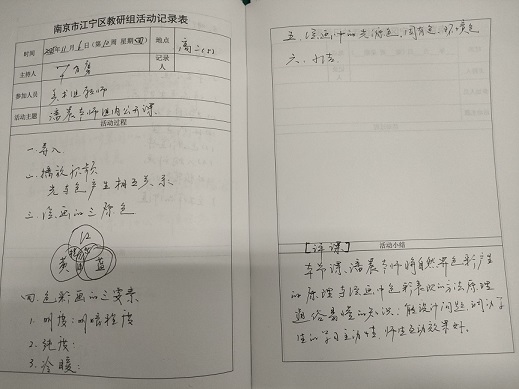 南京市江宁区教研组活动记录表
时间 2018年11月6日(第10周 星期四) 地点 高二(5)
主持人 记录人
参加人员 美术组教师
活动主题 潘晨老师组内公开课
活动过程
一、导入
二、播放视频
光与色产生相互关系
三、绘画的三原色
红
黄 蓝
四、色彩画的三要素
1. 明度:明暗程度
2. 纯度:
3. 冷暖:
五、绘画中的光源色、固有色、环境色
六、小结
活动小结
[评课]
本节课,潘晨老师将自然界色彩产生
的原理与绘画中色彩表现的方法原理
通俗易懂的知识;能设计问题,调动学
生的学习主动性,师生互动效果好。